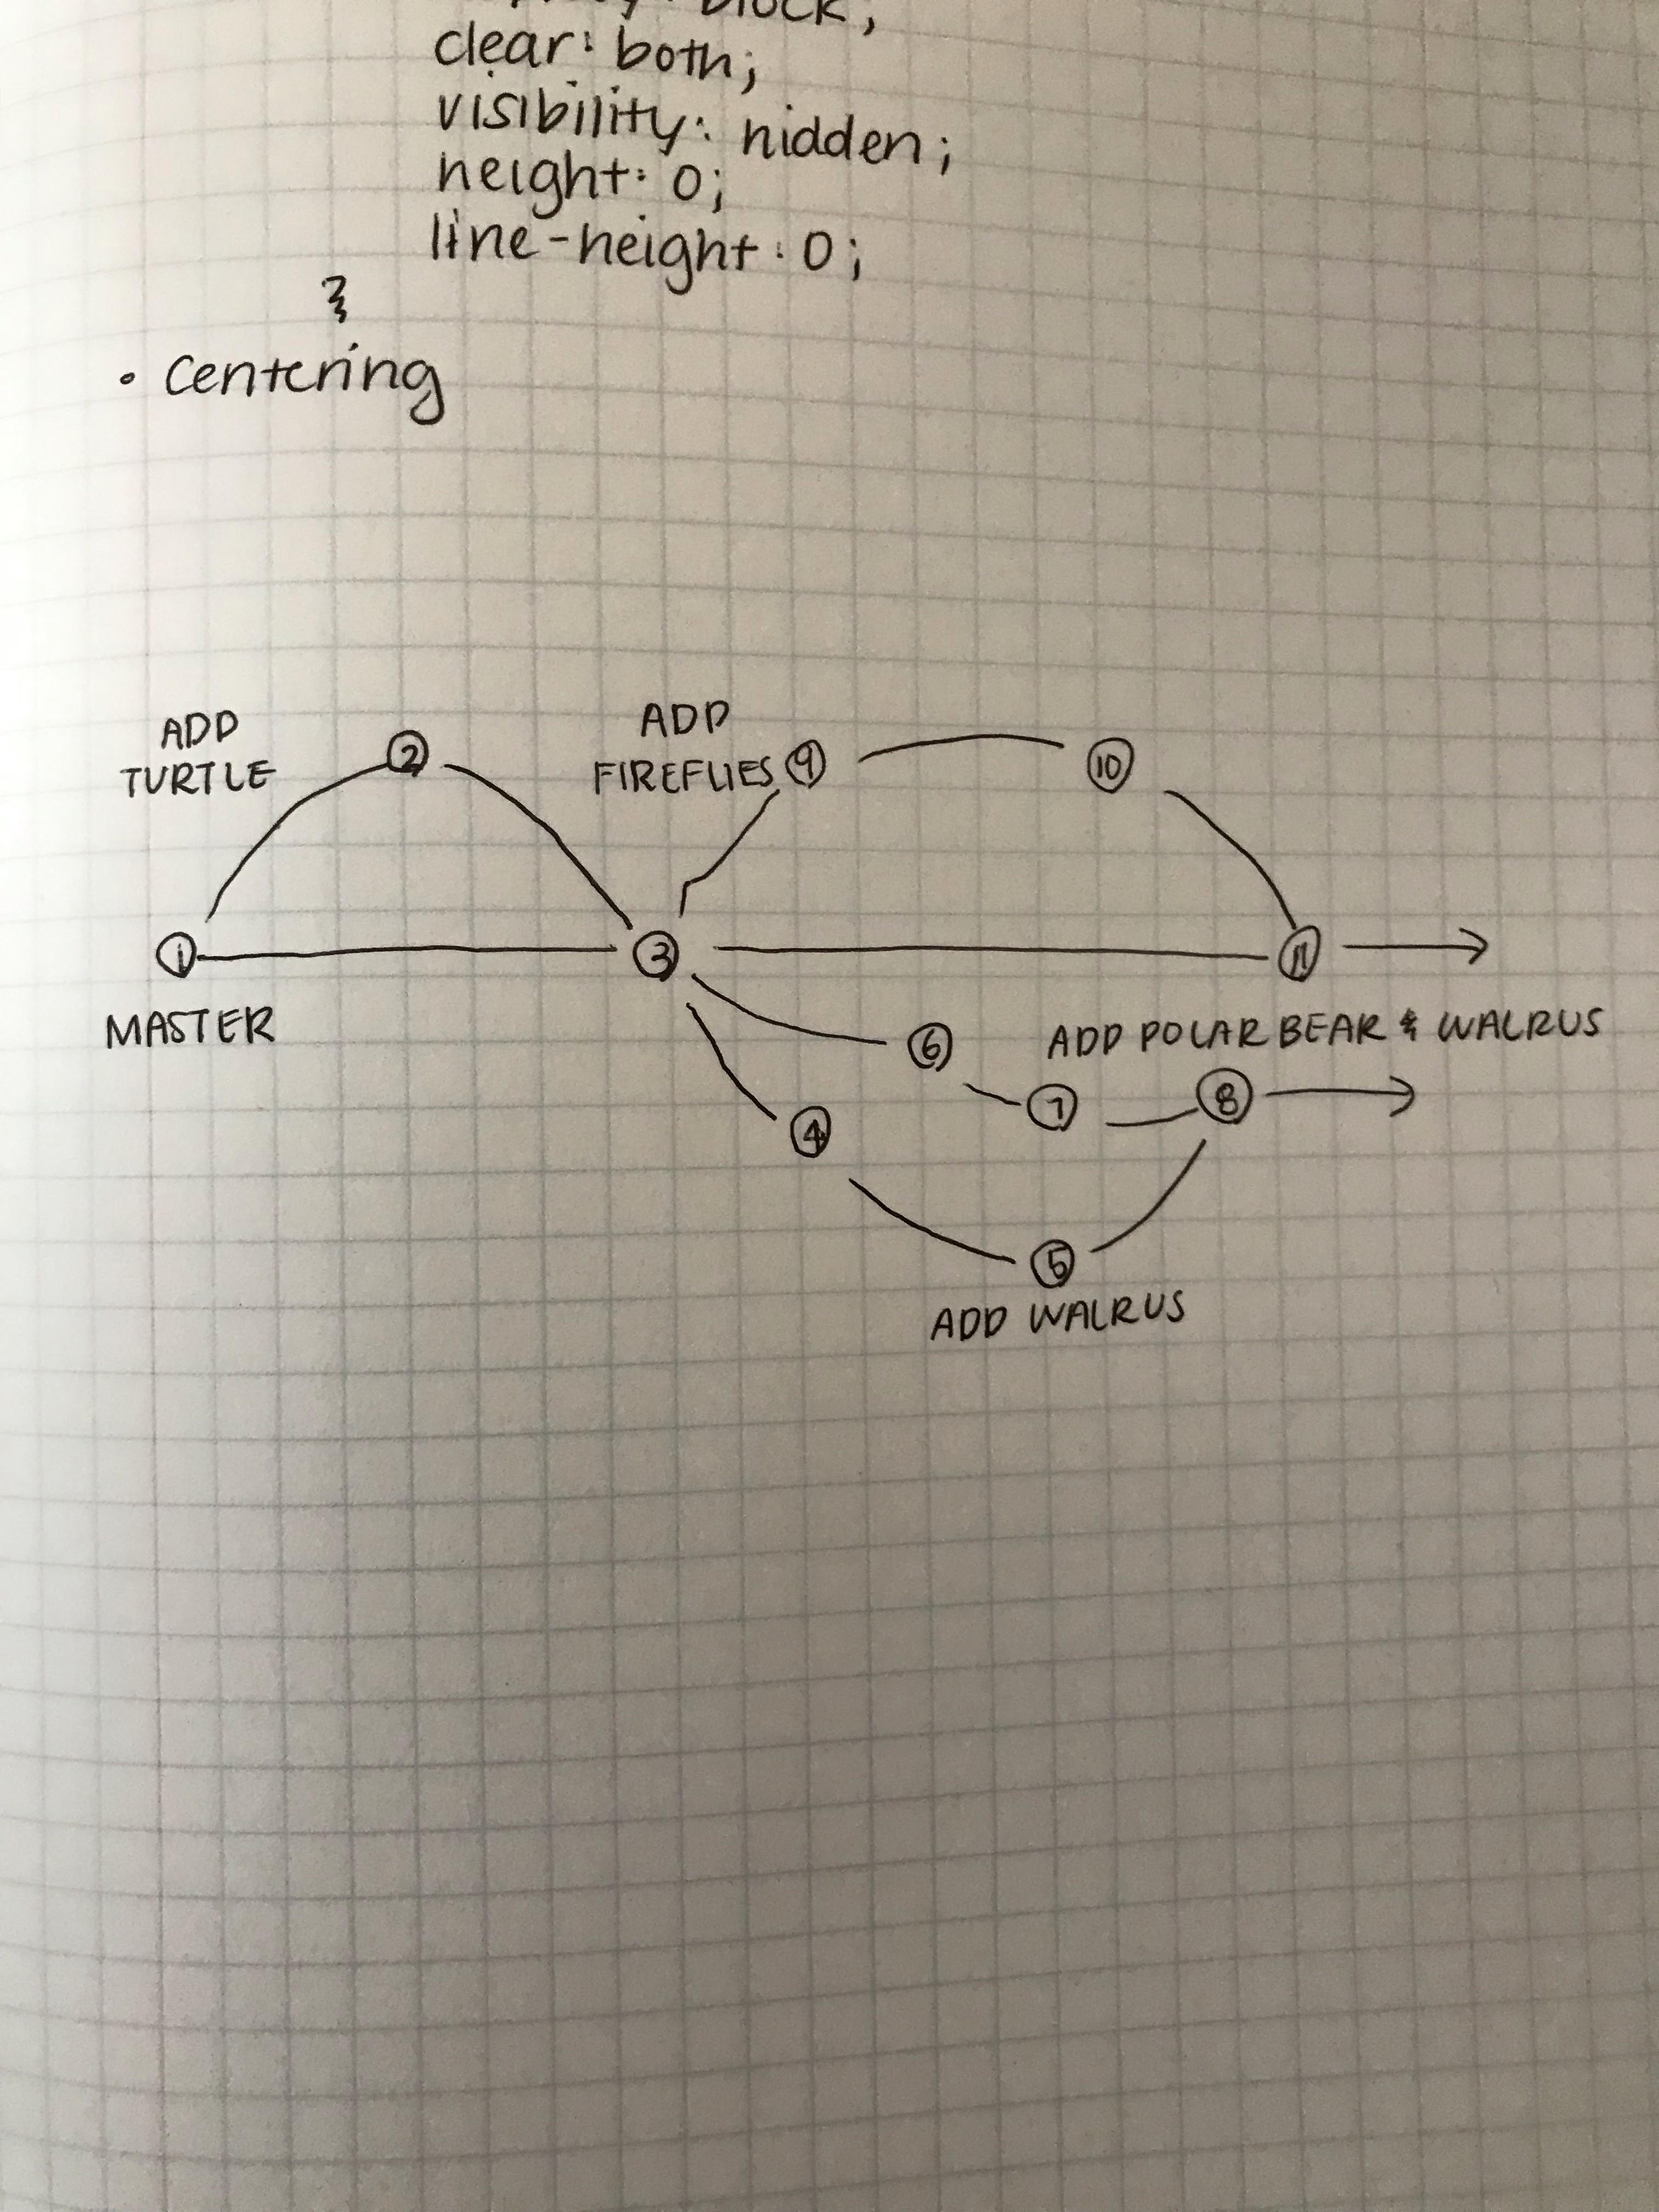 block;
clear: both;
visibility: hidden;
height: 0;
line-height: 0;
}
• Centering
ADD
TURTLE
2
ADD
FIREFLIES
9
10
1
3
11
MASTER
6
ADD POLAR BEAR & WALRUS
7
8
4
5
ADD WALRUS